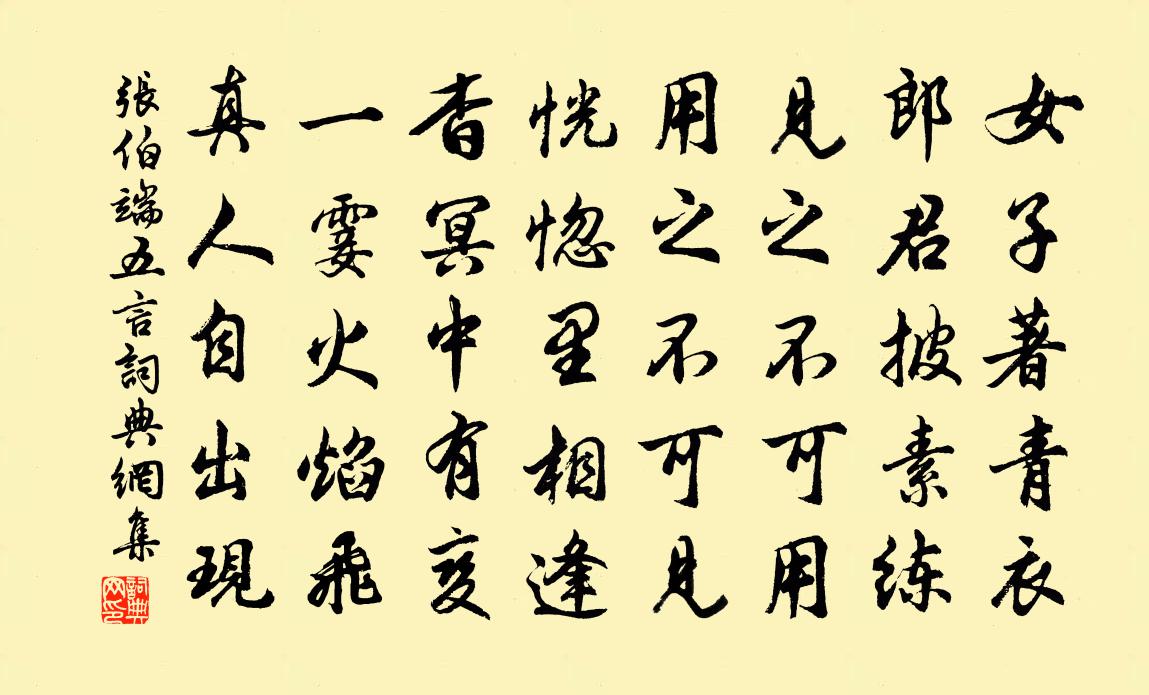 女子著青衣
郎君披素练
見之不可用
用之不可見
恍惚里相逢
杳冥中有变
一霎火焰飛
真人自出現
張伯端五言詞典網集
詞典网印